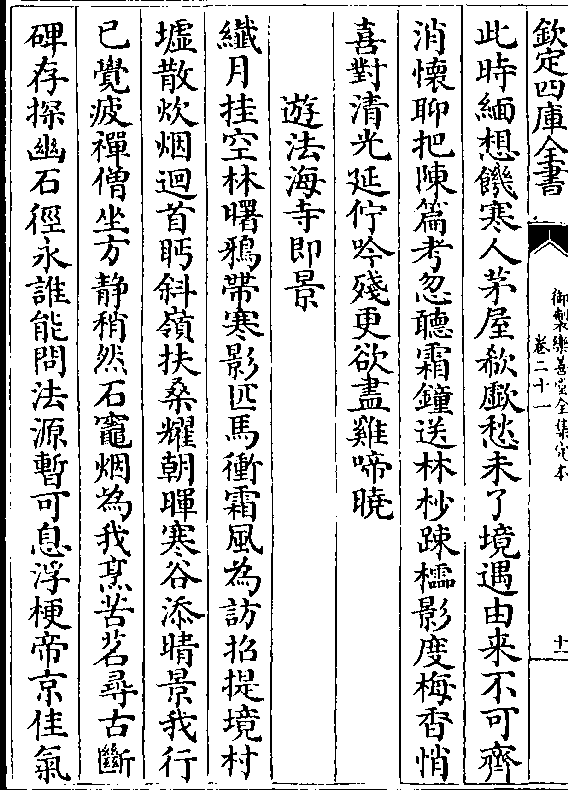 欽定四庫全書
御製樂善堂全集定本
卷二十一
十一
此時緬想饑寒人茅屋欷歔愁未了境遇由来不可齊
消懷聊把陳篇考忽聽霜鐘送林杪踈櫺影度梅香悄
喜對清光延佇吟殘更欲盡雞啼曉
遊法海寺即景
纖月挂空林曙鴉帶寒影匹馬衝霜風為訪招提境村
墟散炊烟迴首眄斜嶺扶桑耀朝暉寒谷添晴景我行
已覺疲禪僧坐方静稍然石竈烟為我烹苦茗尋古斷
碑存探幽石徑永誰能問法源暫可息浮梗帝京佳氣